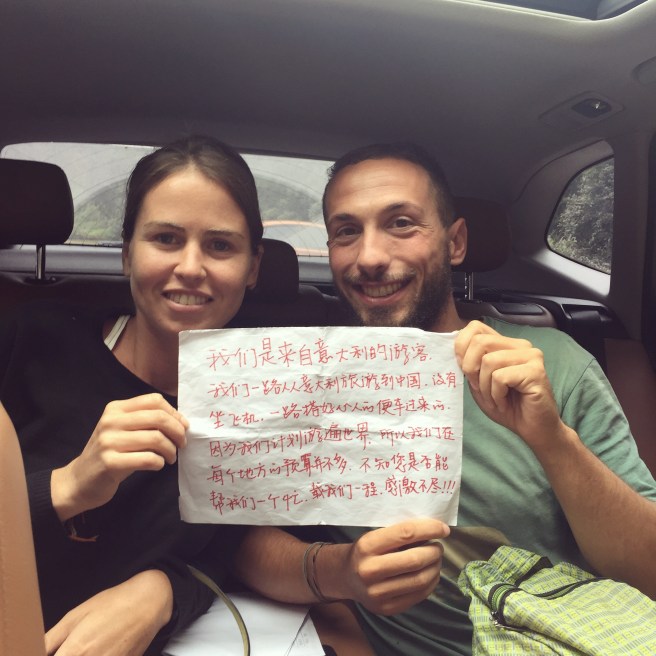 我们是来自意大利的游客.
我们一路从意大利旅游到中国,没有
坐飞机.一路搭好心人的便车过来的.
因为我们计划游遍世界.所以我们在
每个地方的预算并不多.不知您是否能
帮我们一个忙.载我们一程.感激不尽!!!